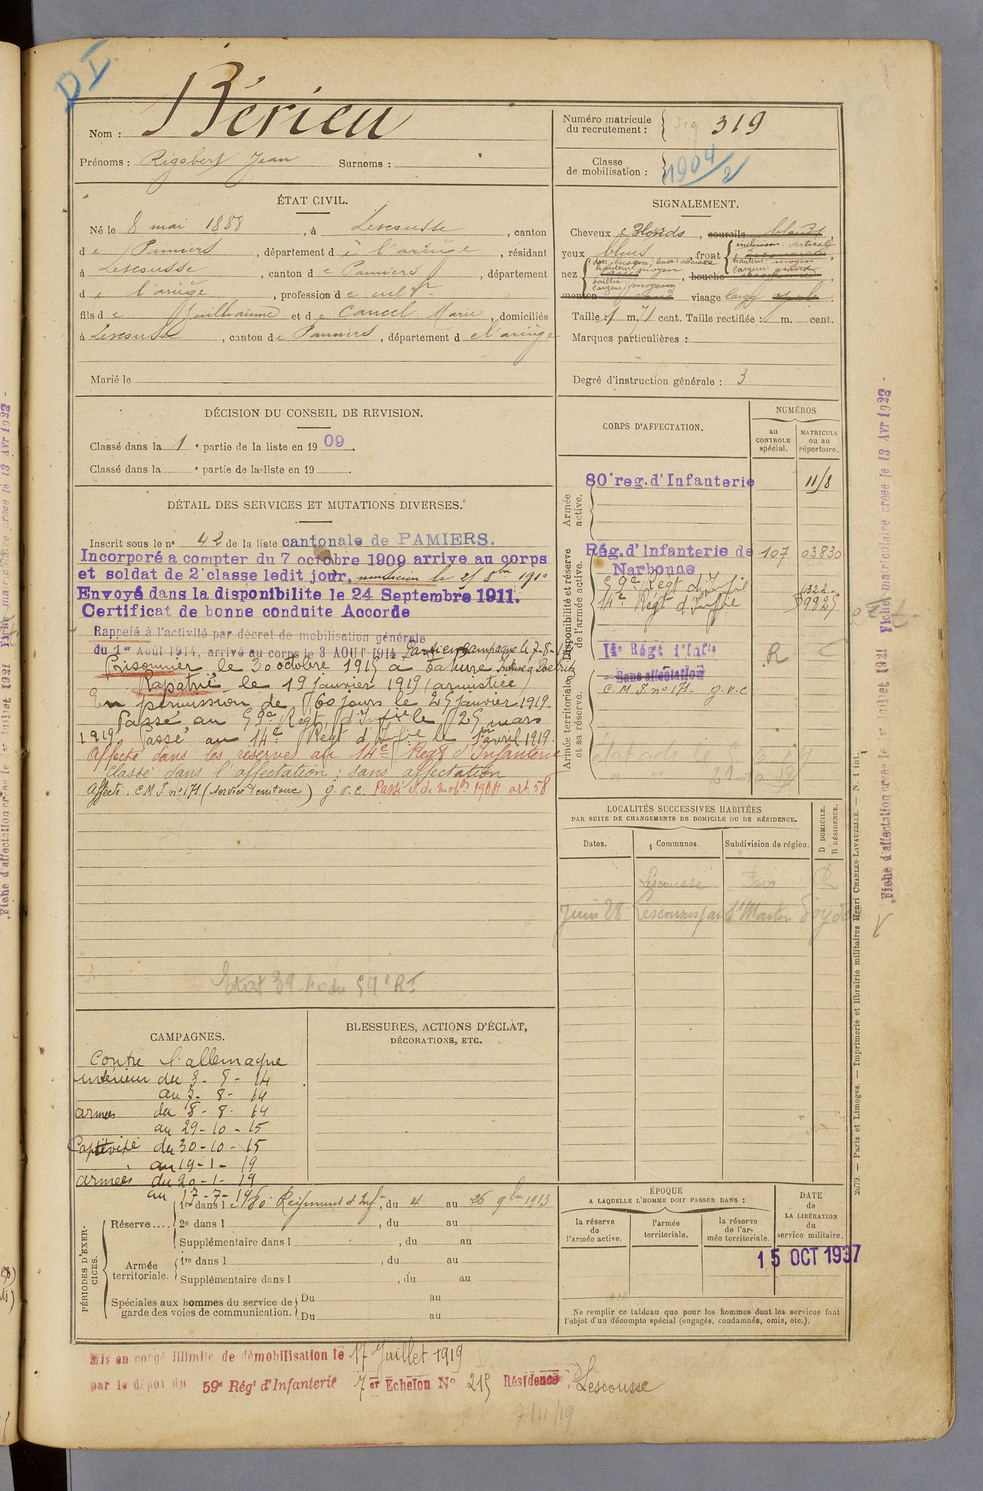 D I
Nom : Bérieu
Prénoms : Rigobert Jean Surnoms :
Numéro matricule du recrutement : 319 319
Classe de mobilisation : 1904/2
ÉTAT CIVIL.
Né le 8 mai 1888, à Lescousse, canton
d e Pamiers, département d e l'ariège, résidant
à Lescousse, canton d e Pamiers, département
d e l'ariège, profession d e cultr
fils d e Guilhaume et d e Cancel Marie, domiciliés
à Lescousse, canton d e Pamiers, département d e l'ariège
Marié le
SIGNALEMENT.
Cheveux Blonds, sourcils blonds,
yeux bleus, front inclinaison vertical
hauteur moyen
largeur grand
nez dos busqué; base abaissée
hauteur moyen, bouche
saillie
largeur moyenne
menton visage large
Taille : 1 m. 71 cent. Taille rectifiée : m. cent.
Marques particulières :
Degré d'instruction générale : 3
DÉCISION DU CONSEIL DE REVISION.
Classé dans la 1e partie de la liste en 1909.
Classé dans la e partie de la liste en 19 .
DÉTAIL DES SERVICES ET MUTATIONS DIVERSES.
Inscrit sous le n° 42 de la liste cantonale de PAMIERS.
Incorporé a compter du 7 octobre 1909 arrive au corps
et soldat de 2e classe ledit jour, musicien le 25 8bre 1910
Envoyé dans la disponibilite le 24 Septembre 1911.
Certificat de bonne conduite Accorde
Rappelé à l'activité par décret de mobilisation générale
du 1er Août 1914, arrivé au corps le 3 AOUT 1914 Parti en campagne le 7-8-14
Prisonnier le 30 octobre 1915 à Tahure
Rapatrié le 19 janvier 1919 (armistice)
En permission de 60 jours le 25 janvier 1919.
Passé au 59e Régt d'Infie le 25 mars
1919 Passé au 14e Régt d'Infie le 1er avril 1919.
Affecté dans les réserves au 14e Regt d'Infanterie
Classé dans l'affectation : sans affectation
Affecté. C.M.I n° 171. (service territoire) g.v.c. Passé cl. de mobon 1904 art. 58
Etat 39 59e RI
CORPS D'AFFECTATION.
NUMÉROS
au CONTROLE spécial.
MATRICULE ou au répertoire.
Armée active.
80e reg. d'Infanterie 11/8
Disponibilité et réserve de l'armée active.
Rég. d'Infanterie de Narbonne 107 03830
59e Régt d'Infie 1332
14e Régt d'Infie 9925
Armée territoriale et sa réserve.
14e Régt d'Infie R C
Sans affectation
C.M.I n° 171. g.v.c
LOCALITÉS SUCCESSIVES HABITÉES
PAR SUITE DE CHANGEMENTS DE DOMICILE OU DE RÉSIDENCE.
Dates. Communes. Subdivision de région. D DOMICILE. R RÉSIDENCE.
Lescousse Foix R
Juin 28 Lescousse par St Martin d'Oydes
CAMPAGNES.
Contre l'allemagne
intérieur du 3 - 8 - 14
au 7 - 8 - 14
armées du 8 - 8 - 14
au 29 - 10 - 15
Captivité du 30 - 10 - 15
au 19 - 1 - 19
armées du 20 - 1 - 19
au 17 - 7 - 19
BLESSURES, ACTIONS D'ÉCLAT,
DÉCORATIONS, ETC.
PÉRIODES D'EXERCICES.
Réserve.... 1re dans l e 80e Régiment d'Infie, du 4 au 26 9bre 1913
2e dans l , du au
Supplémentaire dans l , du au
Armée territoriale. 1re dans l , du au
Supplémentaire dans l , du au
Spéciales aux hommes du service de garde des voies de communication. Du au
Du au
ÉPOQUE
A LAQUELLE L'HOMME DOIT PASSER DANS :
la réserve de l'armée active.
l'armée territoriale.
la réserve de l'armée territoriale.
DATE DE LA LIBÉRATION du service militaire.
15 OCT 1937
Ne remplir ce tableau que pour les hommes dont les services font
l'objet d'un décompte spécial (engagés, condamnés, omis, etc.).
Mis en congé illimité de démobilisation le 17 Juillet 1919
par le dépot du 59e Régt d'Infanterie 7er Echelon N° 215 Résidence Lescousse
7/11/19
2679. — Paris et Limoges. — Imprimerie et librairie militaires Henri CHARLES-LAVAUZELLE. — N. 1 int.
Fiche d'affectation créée le 1er Juillet 1921
Fiche matriculaire créée le 13 Avr 1923 -